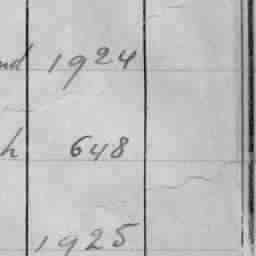 nd 1924
h 648
1925